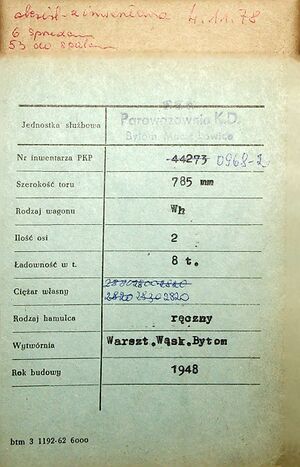 4.11.78
6
53 do
Jednostka służbowa
Parowozownia K.D.
Bytom
Nr inwentarza PKP 44273 0968-2
Szerokość toru 785 mm
Rodzaj wagonu Wh
Ilość osi 2
Ładowność w t. 8 t.
Ciężar własny
2820 2830 2820
Rodzaj hamulca ręczny
Wytwórnia Warszt.Wąsk.Bytom
Rok budowy 1948
btm 3 1192-62 6000